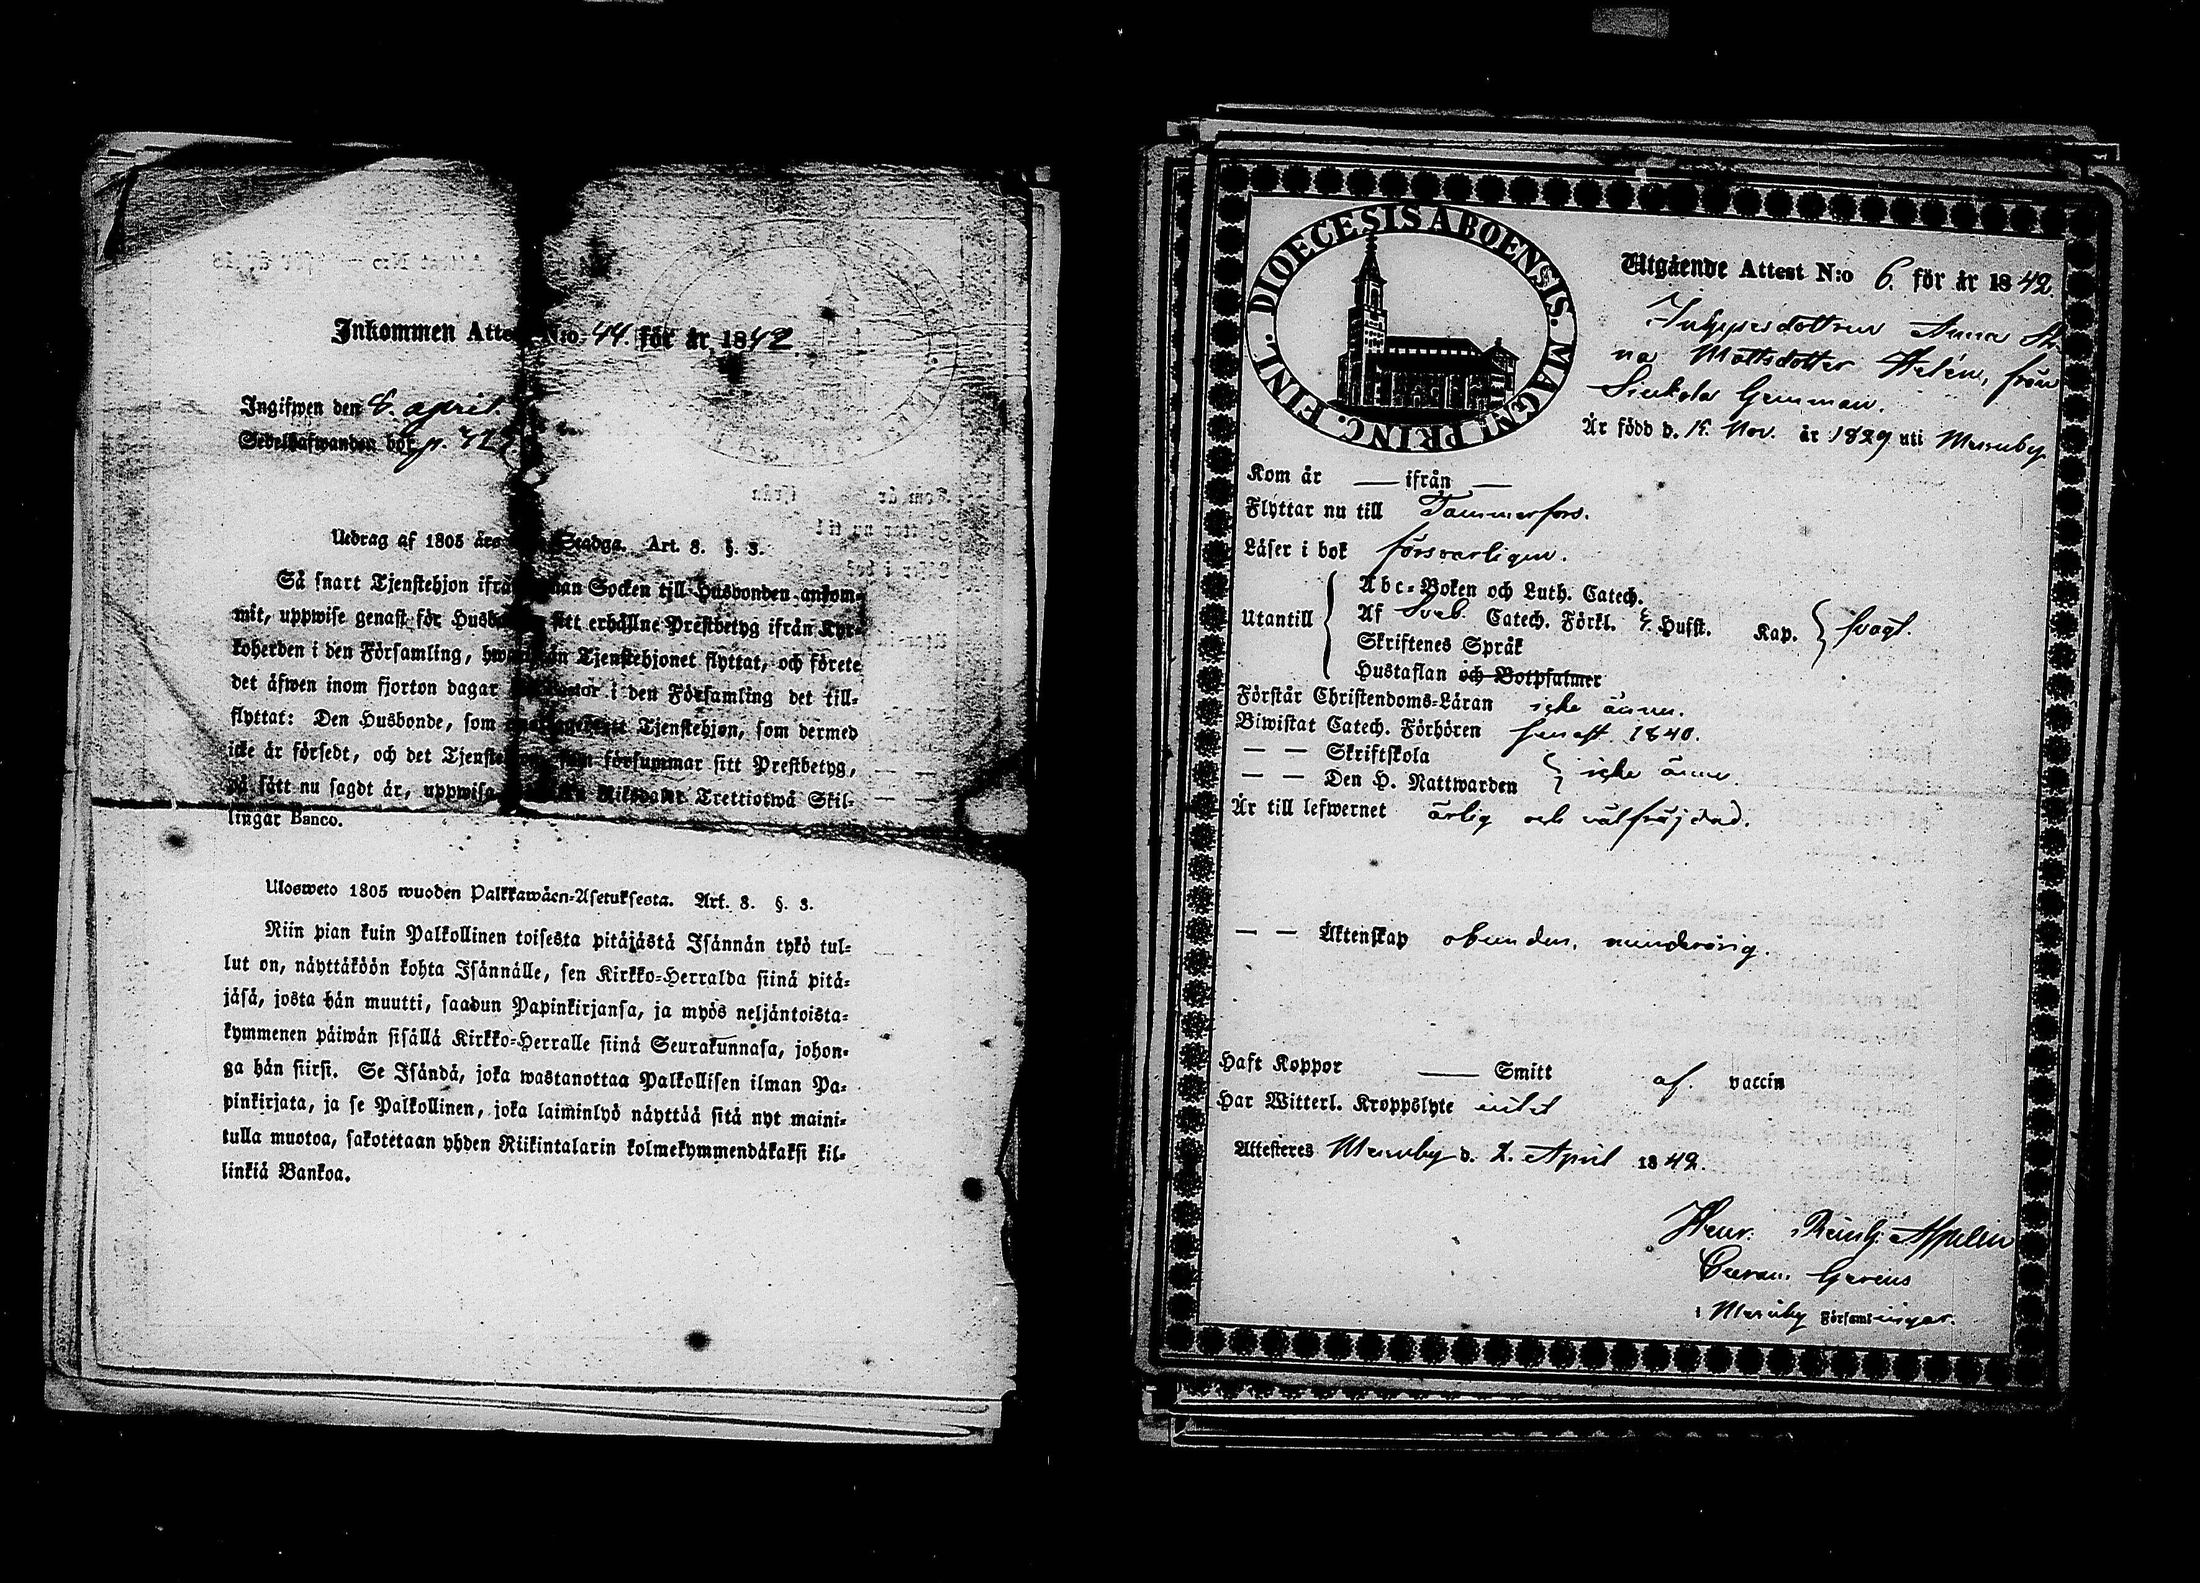 Inkommen Attest N:o 44. för år 1842
Ingifwen den 8. april.
Sedelhafwanden bör p. 42
Utdrag af 1805 års Stadga. Art. 8. §. 3.
Så snart Tjenstehjon ifrån annan Socken till Husbonden ankom-
mit, uppwise genast för Husbonden sitt erhållne Prestbetyg ifrån Kyr-
koherden i den Församling, hwarifrån Tjenstehjonet flyttat, och förete
det äfwen inom fjorton dagar Pastor i den Församling det till-
flyttat: Den Husbonde, som Tjenstehjon, som dermed
icke är försedt, och det Tjenstehjon, som försummar sitt Prestbetyg,
på sätt nu sagdt är, uppwisa, Riksdaler Trettiotwå Skil-
lingar Banco.
Ulosweto 1805 wuoden Palkkawäen-Asetuksesta. Art. 8. §. 3.
Niin pian kuin Palkollinen toisesta pitäjästä Isännän tykö tul-
lut on, näyttäköön kohta Isännälle, sen Kirkko-Herralda siinä pitä-
jäsä, josta hän muutti, saadun Papinkirjansa, ja myös neljäntoista-
kymmenen päiwän sisällä Kirkko-Herralle siinä Seurakunnasa, johon-
ga hän siirsi. Se Isändä, joka wastanottaa Palkollisen ilman Pa-
pinkirjata, ja se Palkollinen, joka laiminlyö näyttää sitä nyt maini-
tulla muotoa, sakotetaan yhden Riikintalarin kolmekymmendäkaksi kil-
linkiä Bankoa.
DIOECESIS ABOENSIS. MAGNI PRINC. FINL.
Utgående Attest N:o 6. för år 1842.
Anna
Mattsdotter Helén, från
Sinkola Gemman.
Är född d. 15. Nov. år 1829 uti Messuby
Kom år — ifrån —
Flyttar nu till Tammerfors.
Läser i bok försvarligen.
Abc-Boken och Luth. Catech.
Utantill Af Sveb. Catech. Förkl. Husst. Kap. svagt.
Skriftenes Språk
Hustaflan och Botpsalmer
Förstår Christendoms-Läran icke ännu.
Biwistat Catech. Förhören senast 1840.
— — Skriftskola
— — Den H. Nattwarden icke ännu
Är till lefwernet ärlig och välfräjdad.
— — Äktenskap obunden, minderårig.
Haft Koppor — Smitt af vaccin
Har Witterl. Kroppslyte intet
Attesteres Messuby d. 2. April 1842.
Henr. Reinh. Appelin
i Messuby Församlingar.